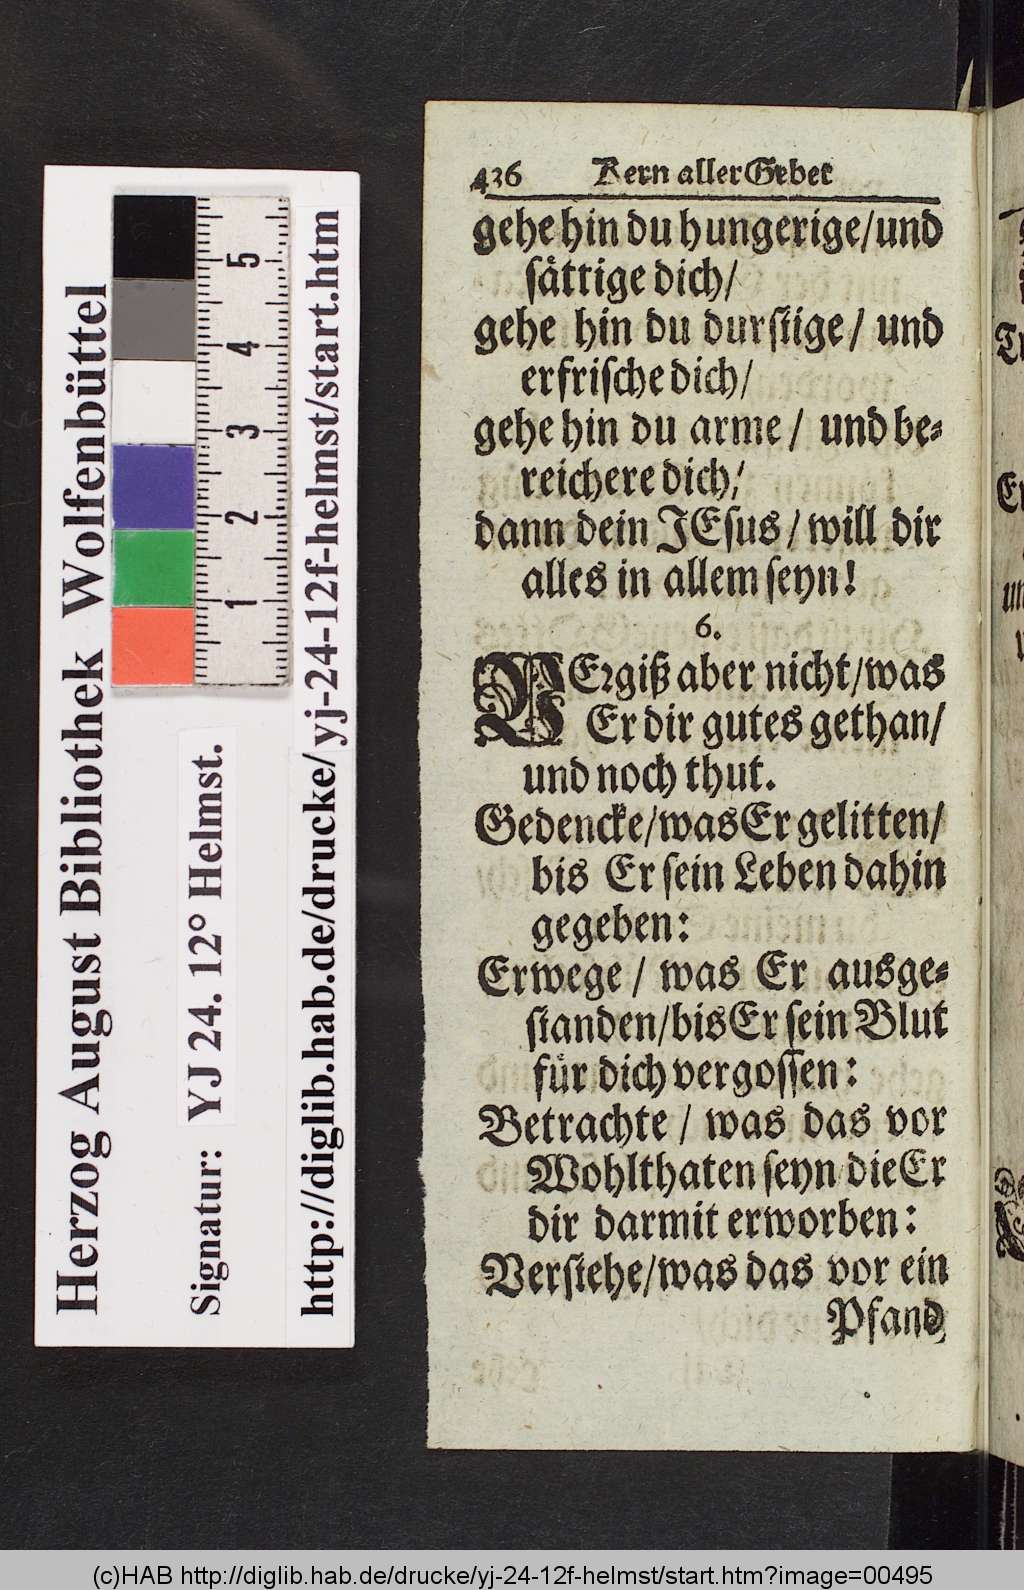 Herzog August Bibliothek Wolfenbüttel
Signatur: YJ 24. 12° Helmst.
http://diglib.hab.de/drucke/yj-24-12f-helmst/start.htm
1 2 3 4 5
436 Kern aller Gebet
gehe hin du hungerige/und
sättige dich/
gehe hin du durstige/ und
erfrische dich/
gehe hin du arme / und be-
reichere dich/
dann dein JEsus / will dir
alles in allem seyn!
6.
VErgiß aber nicht/was
Er dir gutes gethan/
und noch thut.
Gedencke/was Er gelitten/
bis Er sein Leben dahin
gegeben:
Erwege / was Er ausge-
standen/bis Er sein Blut
für dich vergossen:
Betrachte / was das vor
Wohlthaten seyn/die Er
dir darmit erworben:
Verstehe/was das vor ein
Pfand
(c)HAB http://diglib.hab.de/drucke/yj-24-12f-helmst/start.htm?image=00495